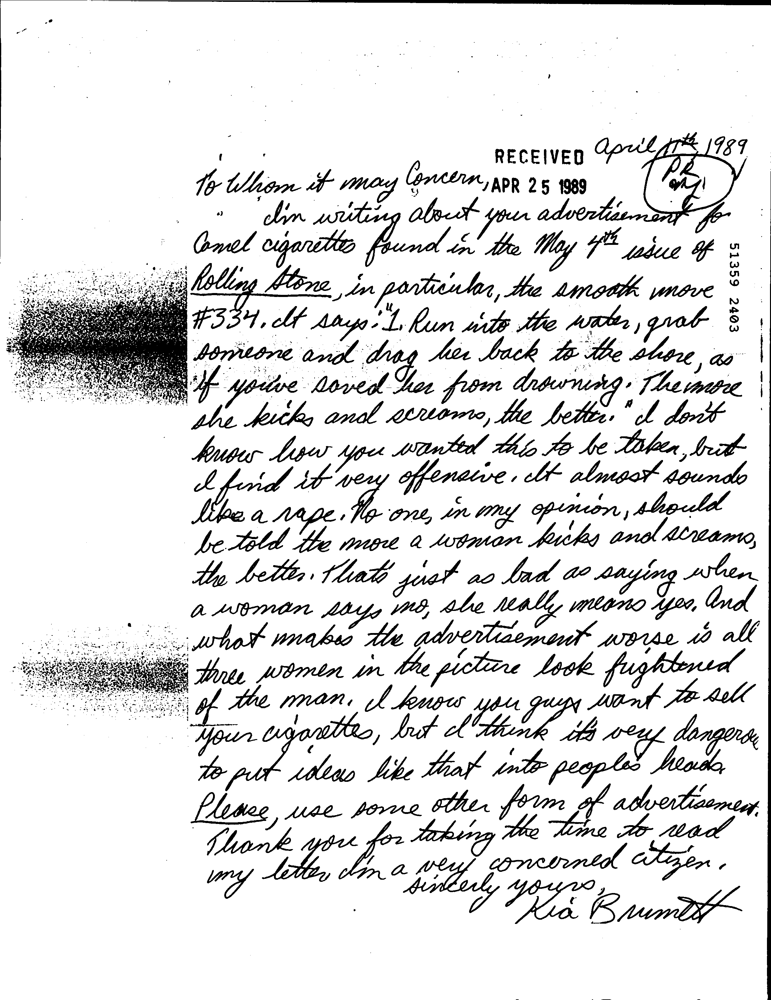 April 11th 1989
RECEIVED
APR 25 1989
P.R.
To Whom it may Concern,
I'm writing about your advertisement for
Camel cigarettes found in the May 4th issue of
Rolling Stone, in particular, the smooth move
#334. It says: "1. Run into the water, grab
someone and drag her back to the shore, as
if you've saved her from drowning. The more
she kicks and screams, the better." I don't
know how you wanted this to be taken, but
I find it very offensive. It almost sounds
like a rape. No one, in my opinion, should
be told the more a woman kicks and screams,
the better. That's just as bad as saying when
a woman says no, she really means yes. And
what makes the advertisement worse is all
three women in the picture look frightened
of the man. I know you guys want to sell
your cigarettes, but I think it's very dangerou
to put ideas like that into people's heads.
Please, use some other form of advertisement.
Thank you for taking the time to read
my letter I'm a very concerned citizen.
Sincerly yours,
Kia Brumett
51359 2403